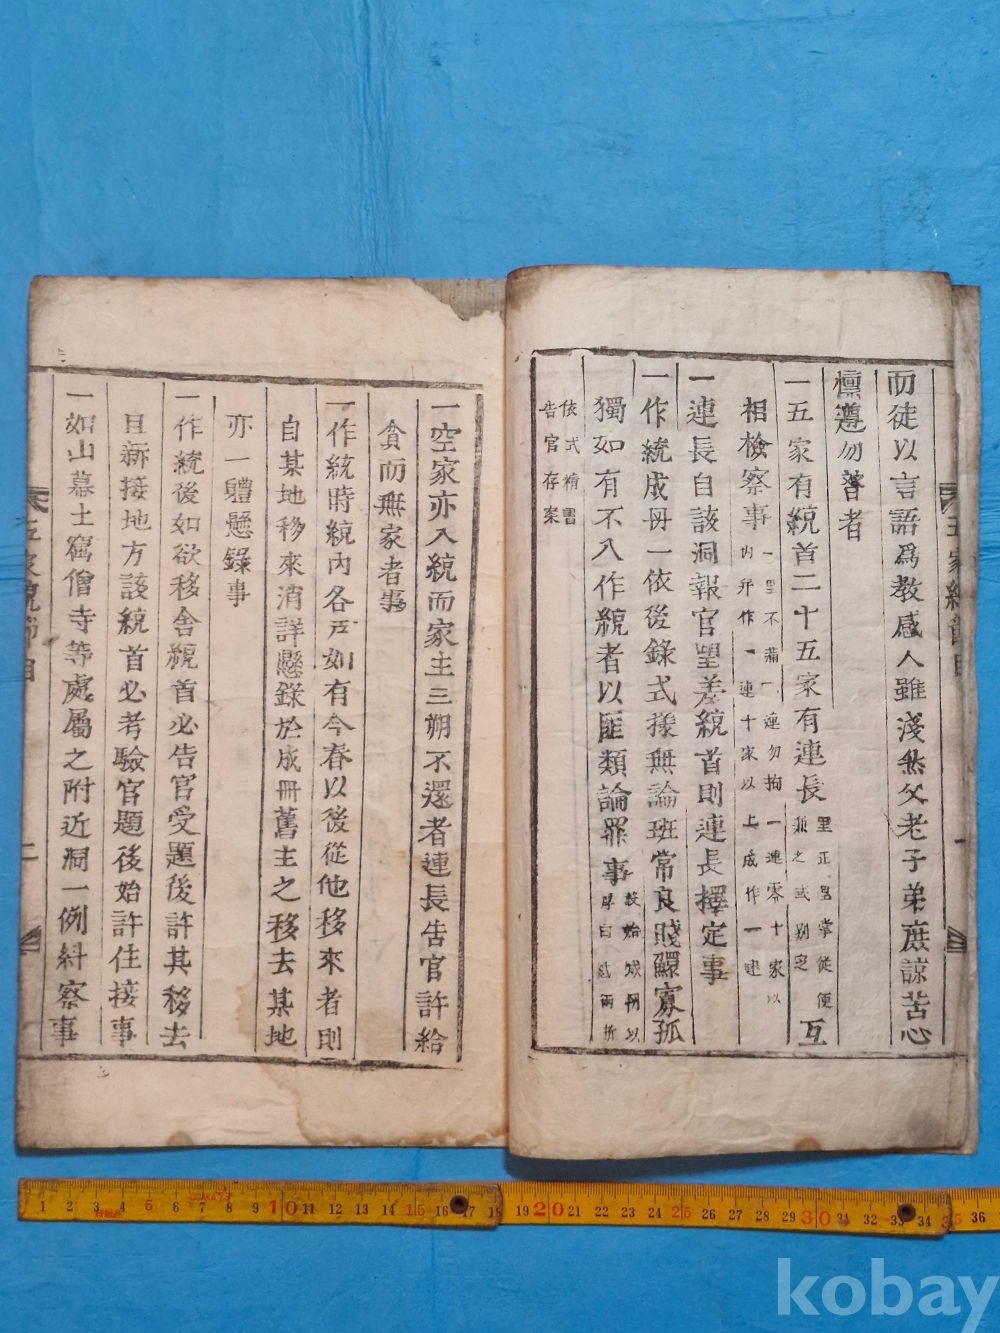 而徒以言語爲敎感人雖淺然父老子弟庶諒苦心
懍遵勿者
一五家有統首二十五家有連長里正里掌從便兼之或別定互
相檢察事一里不滿一連勿拘一連零十家以內幷作一連十家以上成作一連
一連長自該洞報官望差統首則連長擇定事
一作統成冊一依後錄式樣無論班常良賤鰥寡孤
獨如有不入作統者以匪類論罪事
依式精書
告官存案
五家統節目
一
一空家亦入統而家主三朔不還者連長告官許給
貧而無家者事
一作統時統內各戶如有今春以後從他移來者則
自某地移來消詳懸錄於成冊舊主之移去某地
亦一軆懸錄事
一作統後如欲移舍統首必告官受題後許其移去
且新接地方該統首必考驗官題後始許住接事
一如山幕土窟僧寺等處屬之附近洞一例糾察事
五家統節目
二
1 2 3 4 5 6 7 8 9 10 11 12 13 14 15 16 17 18 19 20 21 22 23 24 25 26 27 28 29 30 31 32 33 34 35 36
kobay